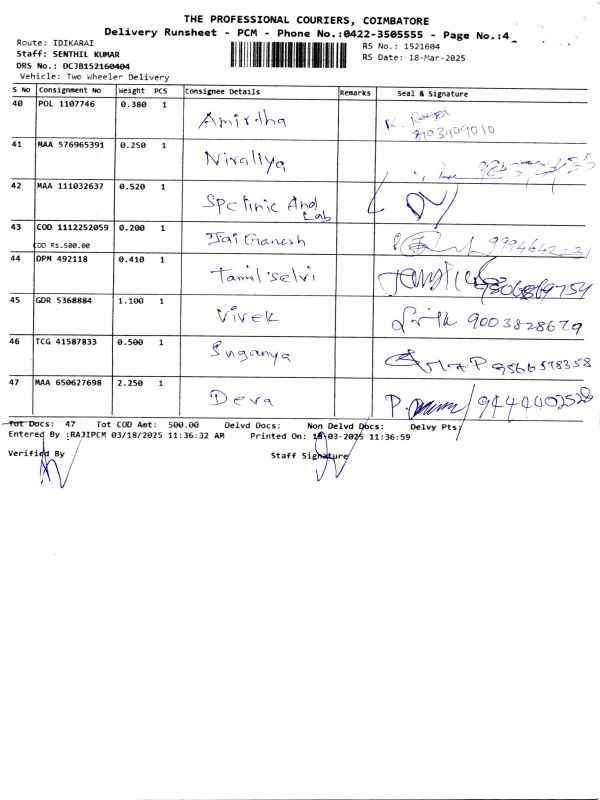 THE PROFESSIONAL COURIERS, COIMBATORE
Delivery Runsheet - PCM - Phone No.:0422-3505555 - Page No.:4
Route: IDIKARAI
RS No.: 1521604
Staff: SENTHIL KUMAR
RS Date: 18-Mar-2025
DRS No.: DCJB152160404
Vehicle: Two Wheeler Delivery
S No Consignment No Weight PCS Consignee Details Remarks Seal & Signature
40 POL 1107746 0.380 1 Amirtha K.
8903409010
41 MAA 576965391 0.250 1 Niraliya
42 MAA 111032637 0.520 1 Spclinic And Lab
43 COD 1112252059 0.200 1 Jai Ganesh
COD Rs.500.00
44 DPM 492118 0.410 1 Tamil selvi
45 GDR 5368884 1.100 1 Vivek 9003828679
46 TCG 41587833 0.500 1 Suganya 9566578358
47 MAA 650627698 2.250 1 Deva P. 9444402528
Tot Docs: 47 Tot COD Amt: 500.00 Delvd Docs: Non Delvd Docs: Delvy Pts:
Entered By :RAJIPCM 03/18/2025 11:36:32 AM Printed On: 18-03-2025 11:36:59
Verified By Staff Signature